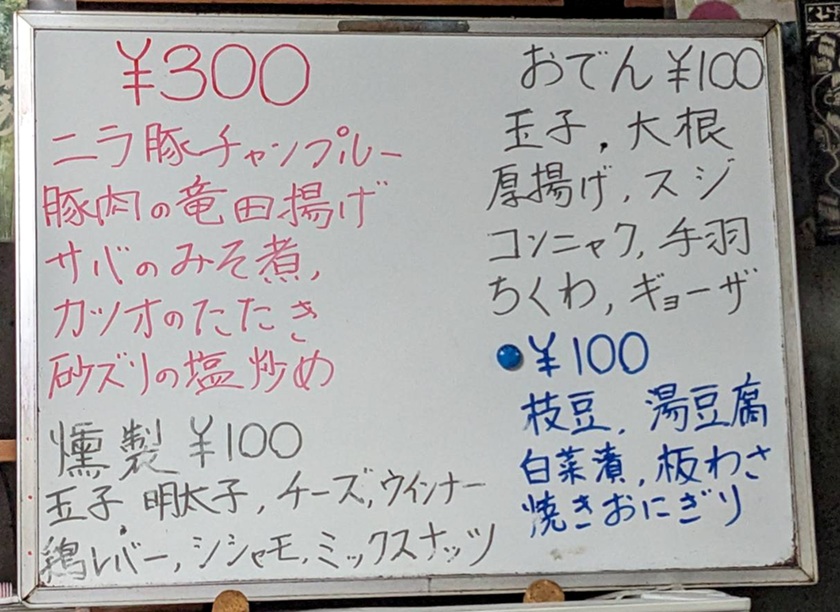 ¥300
ニラ豚チャンプルー
豚肉の竜田揚げ
サバのみそ煮,
カツオのたたき
砂ズリの塩炒め
燻製 ¥100
玉子, 明太子, チーズ, ウインナー
鶏レバー, シシャモ, ミックスナッツ
おでん ¥100
玉子, 大根
厚揚げ, スジ
コンニャク, 手羽
ちくわ, ギョーザ
¥100
枝豆, 湯豆腐
白菜漬, 板わさ
焼きおにぎり